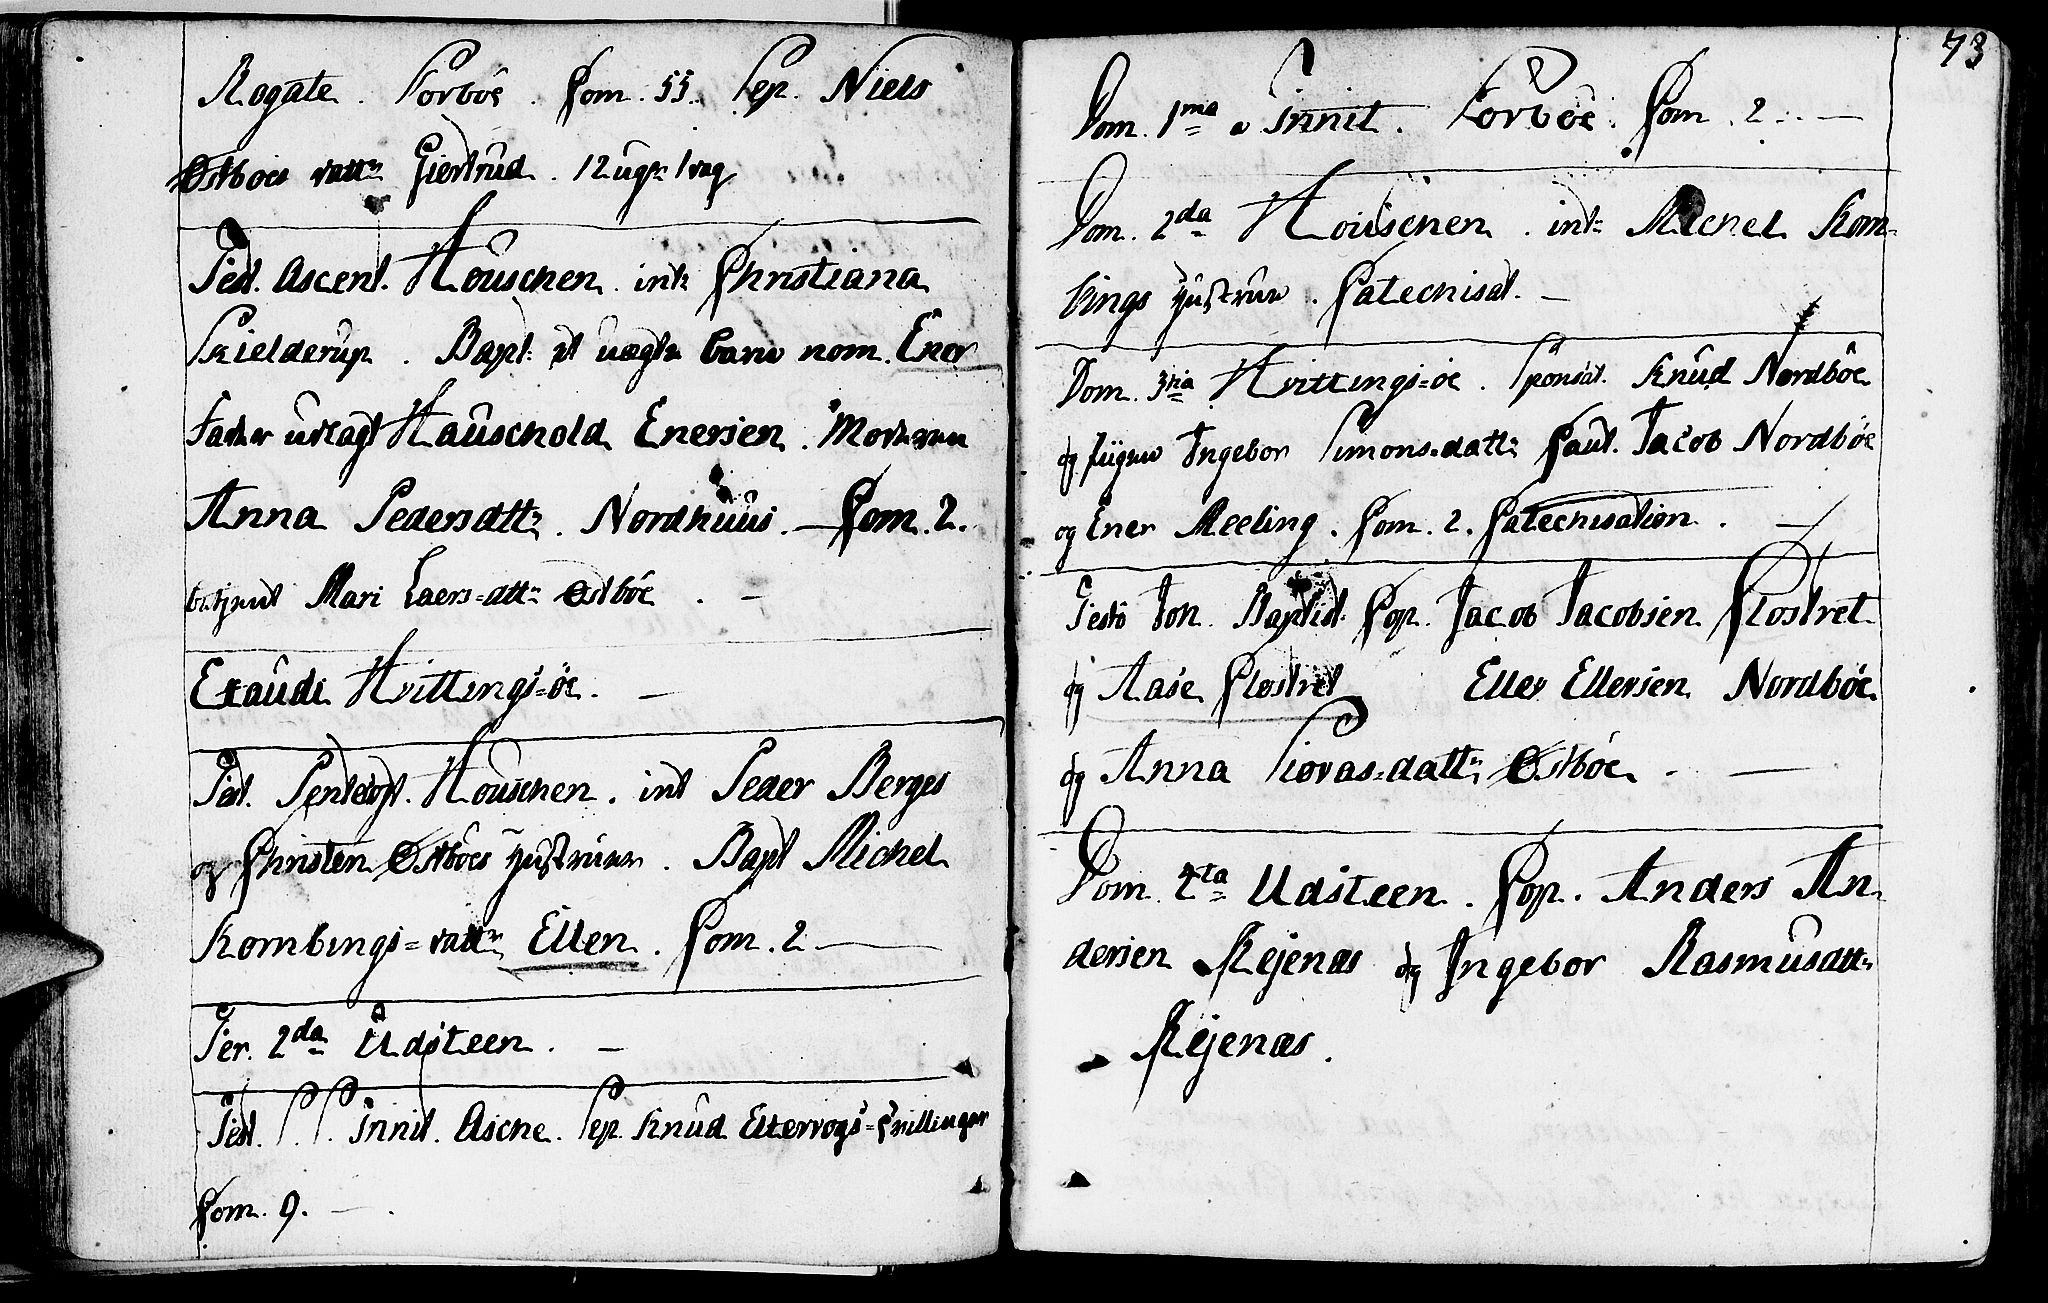 Rogate. Sorböe. Com. 55. Sep. Niels
Østböes datt: Giertrud. 12 uger 1 dag
Fest. Ascent. Houschen. int: Christiana
Skielderup. Bapt: et uægte barn nom. Ener
Fader udlagt Hauschold Enersen. Moderen
Anna Pedersdttr. Nordhuus. — Com. 2.
betient Mari Laers=dttr: Østböe. —
Exaudi Hvittings=öe. —
Fest. Pentecost. Houschen. int Peder Berges
og Christen Østböes Hustruer. Bapt Michel
Kornbings=datter Ellen. Com. 2 —
Fer. 2da Udsteen. —
Fest. S. S. Trinit. Asche. Sep. Knud Ettervogs=Tvillinger
Com. 9. —
73
Dom. 1ma a Trinit. Sorböe. Com. 2. —
Dom. 2da Houschen. int: Michel Korn-
bings Hustrue. Catechisat. —
Dom. 3tia Hvittings=öe. Sponsat. Knud Nordböe
og Pigen Ingebor Simons=datt: Caut. Jacob Nordböe
og Ener Meeling. Com. 2. Catechisation. —
Festo Joh. Baptist. Cop. Jacob Jacobsen Clostret
og Aase Clostret Eller Ellersen Nordböe
og Anna Siovas=datt: Østböe. —
Dom. 4ta Udsteen. Cop. Anders An-
dersen Rejenæs og Ingebor Rasmusdatt:
Rejenæs.